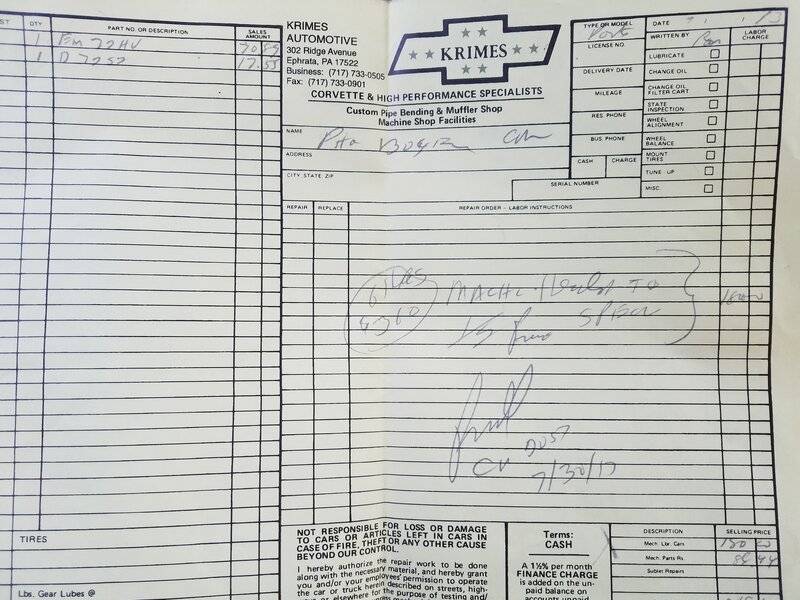 ST QTY PART NO. OR DESCRIPTION SALES AMOUNT
1 70.89
1 D 7252 17.55
KRIMES
AUTOMOTIVE
302 Ridge Avenue
Ephrata, PA 17522
Business: (717) 733-0505
Fax: (717) 733-0901
KRIMES
CORVETTE & HIGH PERFORMANCE SPECIALISTS
Custom Pipe Bending & Muffler Shop
Machine Shop Facilities
NAME
ADDRESS
CITY STATE ZIP
SERIAL NUMBER
TYPE OR MODEL
Parts
LICENSE NO.
DELIVERY DATE
MILEAGE
RES PHONE
BUS PHONE
CASH CHARGE
DATE
WRITTEN BY
LABOR CHARGE
LUBRICATE
CHANGE OIL
CHANGE OIL FILTER CART
STATE INSPECTION
WHEEL ALIGNMENT
WHEEL BALANCE
MOUNT TIRES
TUNE UP
MISC.
REPAIR REPLACE REPAIR ORDER - LABOR INSTRUCTIONS
TO
7/30/17
TIRES
Lbs. Gear Lubes @
NOT RESPONSIBLE FOR LOSS OR DAMAGE
TO CARS OR ARTICLES LEFT IN CARS IN
CASE OF FIRE, THEFT OR ANY OTHER CAUSE
BEYOND OUR CONTROL.
I hereby authorize the repair work to be done
along with the necessary material, and hereby grant
you and/or your employees' permission to operate
the car or truck herein described on streets, high-
ways or elsewhere for the purpose of testing and/
Terms:
CASH
A 1½% per month
FINANCE CHARGE
is added on the un-
paid balance on
accounts unpaid
DESCRIPTION SELLING PRICE
Mech. Lbr. Cars
Mech. Parts Rs 88.44
Sublet Repairs